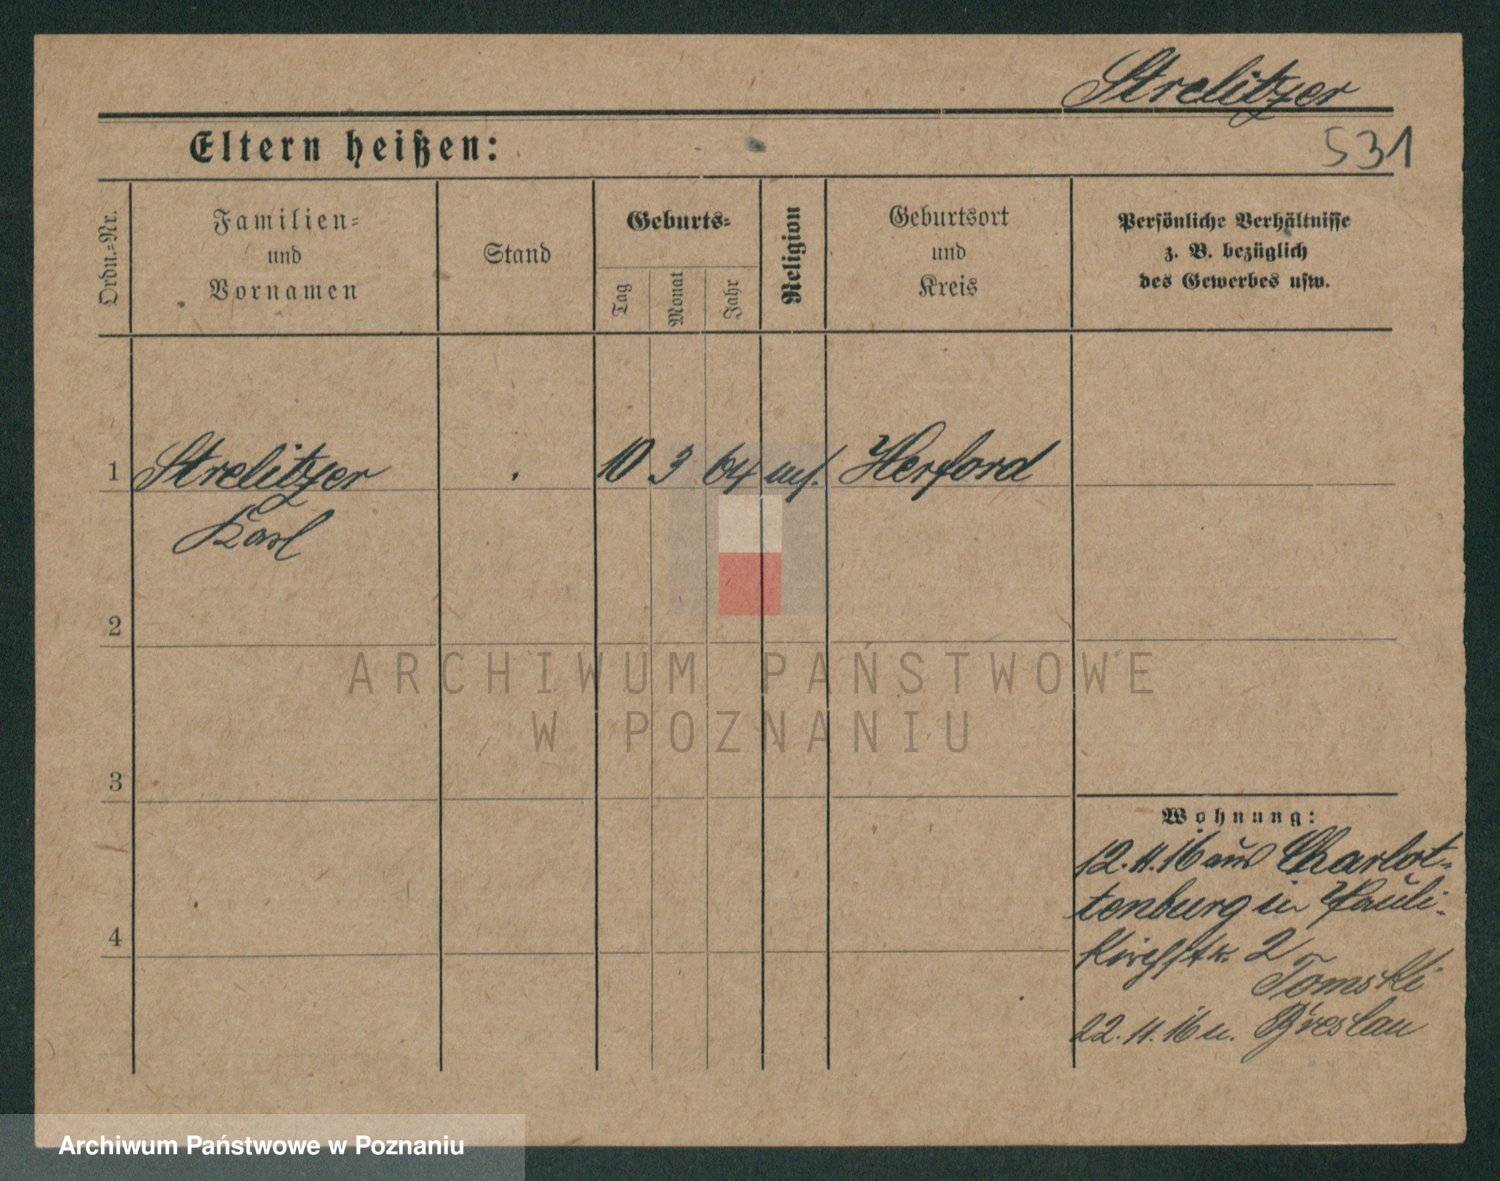 Strelitzer
531
Eltern heißen:
Ordn.-Nr.
Familien-
und
Vornamen
Stand
Geburts-
Tag
Monat
Jahr
Religion
Geburtsort
und
Kreis
Persönliche Verhältnisse
z. B. bezüglich
des Gewerbes usw.
1
Strelitzer
Karl
10
3
64
Herford
2
3
4
ARCHIWUM PAŃSTWOWE
W POZNANIU
Wohnung:
12.11.16 aus Charlot-
tenburg in Pauli-
kirchstr. 2
Tomski
22.11.16 n. Breslau
Archiwum Państwowe w Poznaniu